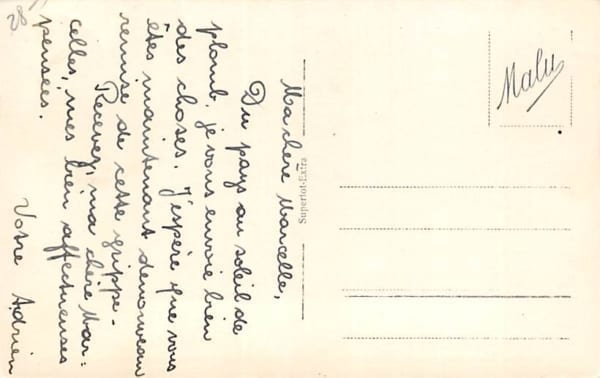 Ma chère Marcelle,
Du pays au soleil de
plomb, je vous envoie bien
des choses. J'espère que vous
êtes maintenant de nouveau
remise de cette grippe.
Recevez, ma chère Mar=
celles, mes bien affectueuses
pensées.
Votre Adrien
Supertot-Extra
Malu
28